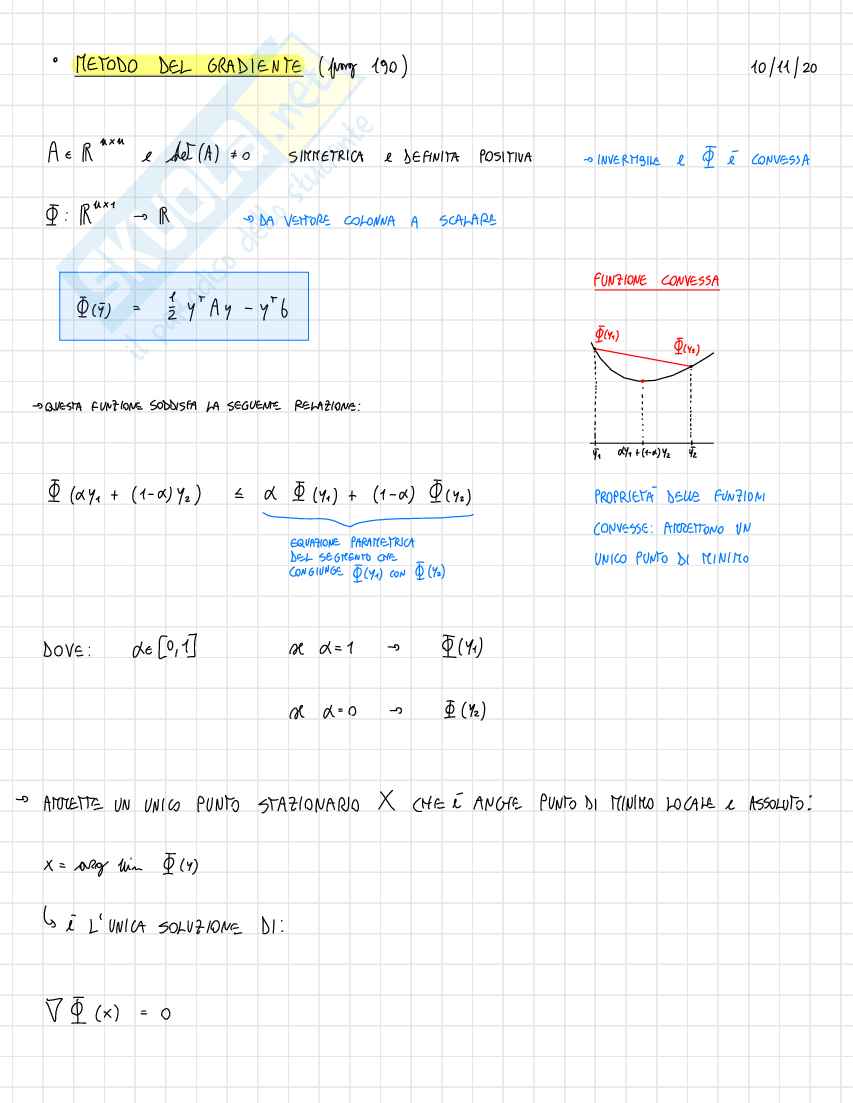 • METODO DEL GRADIENTE (pag 190) 10/11/20
A ∈ ℝⁿˣⁿ e det(A) ≠ 0 SIMMETRICA e DEFINITA POSITIVA → INVERTIBILE e Φ È CONVESSA
Φ: ℝⁿˣ¹ → ℝ → DA VETTORE COLONNA A SCALARE
Φ(ȳ) = 1/2 yᵀAy - yᵀb
FUNZIONE CONVESSA
Φ(y₁)
Φ(y₂)
ȳ₁ αy₁+(1-α)y₂ ȳ₂
→ QUESTA FUNZIONE SODDISFA LA SEGUENTE RELAZIONE:
Φ (αy₁ + (1-α)y₂) ≤ α Φ(y₁) + (1-α) Φ(y₂)
EQUAZIONE PARAMETRICA
DEL SEGMENTO CHE
CONGIUNGE Φ(y₁) CON Φ(y₂)
PROPRIETÀ DELLE FUNZIONI
CONVESSE: AMMETTONO UN
UNICO PUNTO DI MINIMO
DOVE: α∈[0,1] se α=1 → Φ(y₁)
se α=0 → Φ(y₂)
→ AMMETTE UN UNICO PUNTO STAZIONARIO X CHE È ANCHE PUNTO DI MINIMO LOCALE e ASSOLUTO:
x = arg min Φ(y)
↳ È L'UNICA SOLUZIONE DI:
∇Φ(x) = 0
SKUOLA.net
il paradiso dello studente